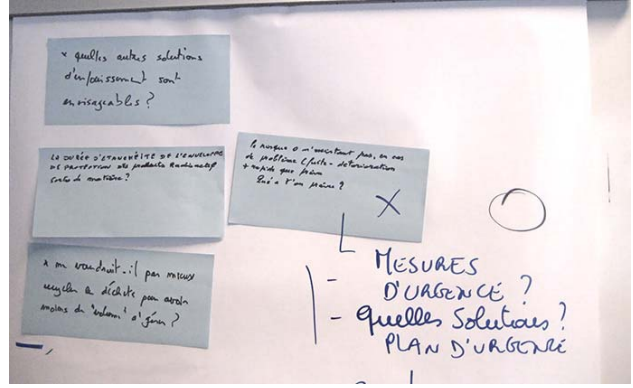 * quelles autres solutions
d'enfouissement sont
envisageables ?
LA DURÉE D'ETANCHÉITÉ DE L'ENVELOPPE
DE PROTECTION des produits Radioactif
de matière ?
Le risque 0 n'existant pas, en cas
de problème (fuite - détérioration
+ rapide que prévu
Qu'a t'on prévu ?
X
* ne vaudrait-il pas mieux
recycler le déchets pour avoir
moins de "volume" à gérer ?
MESURES
D'URGENCE ?
- Quelles Solutions ?
PLAN D'URGENCE